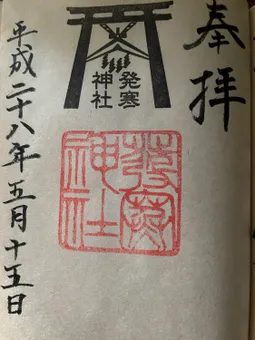 奉拝
発寒
神社
發寒
神社
平成二十八年五月十五日